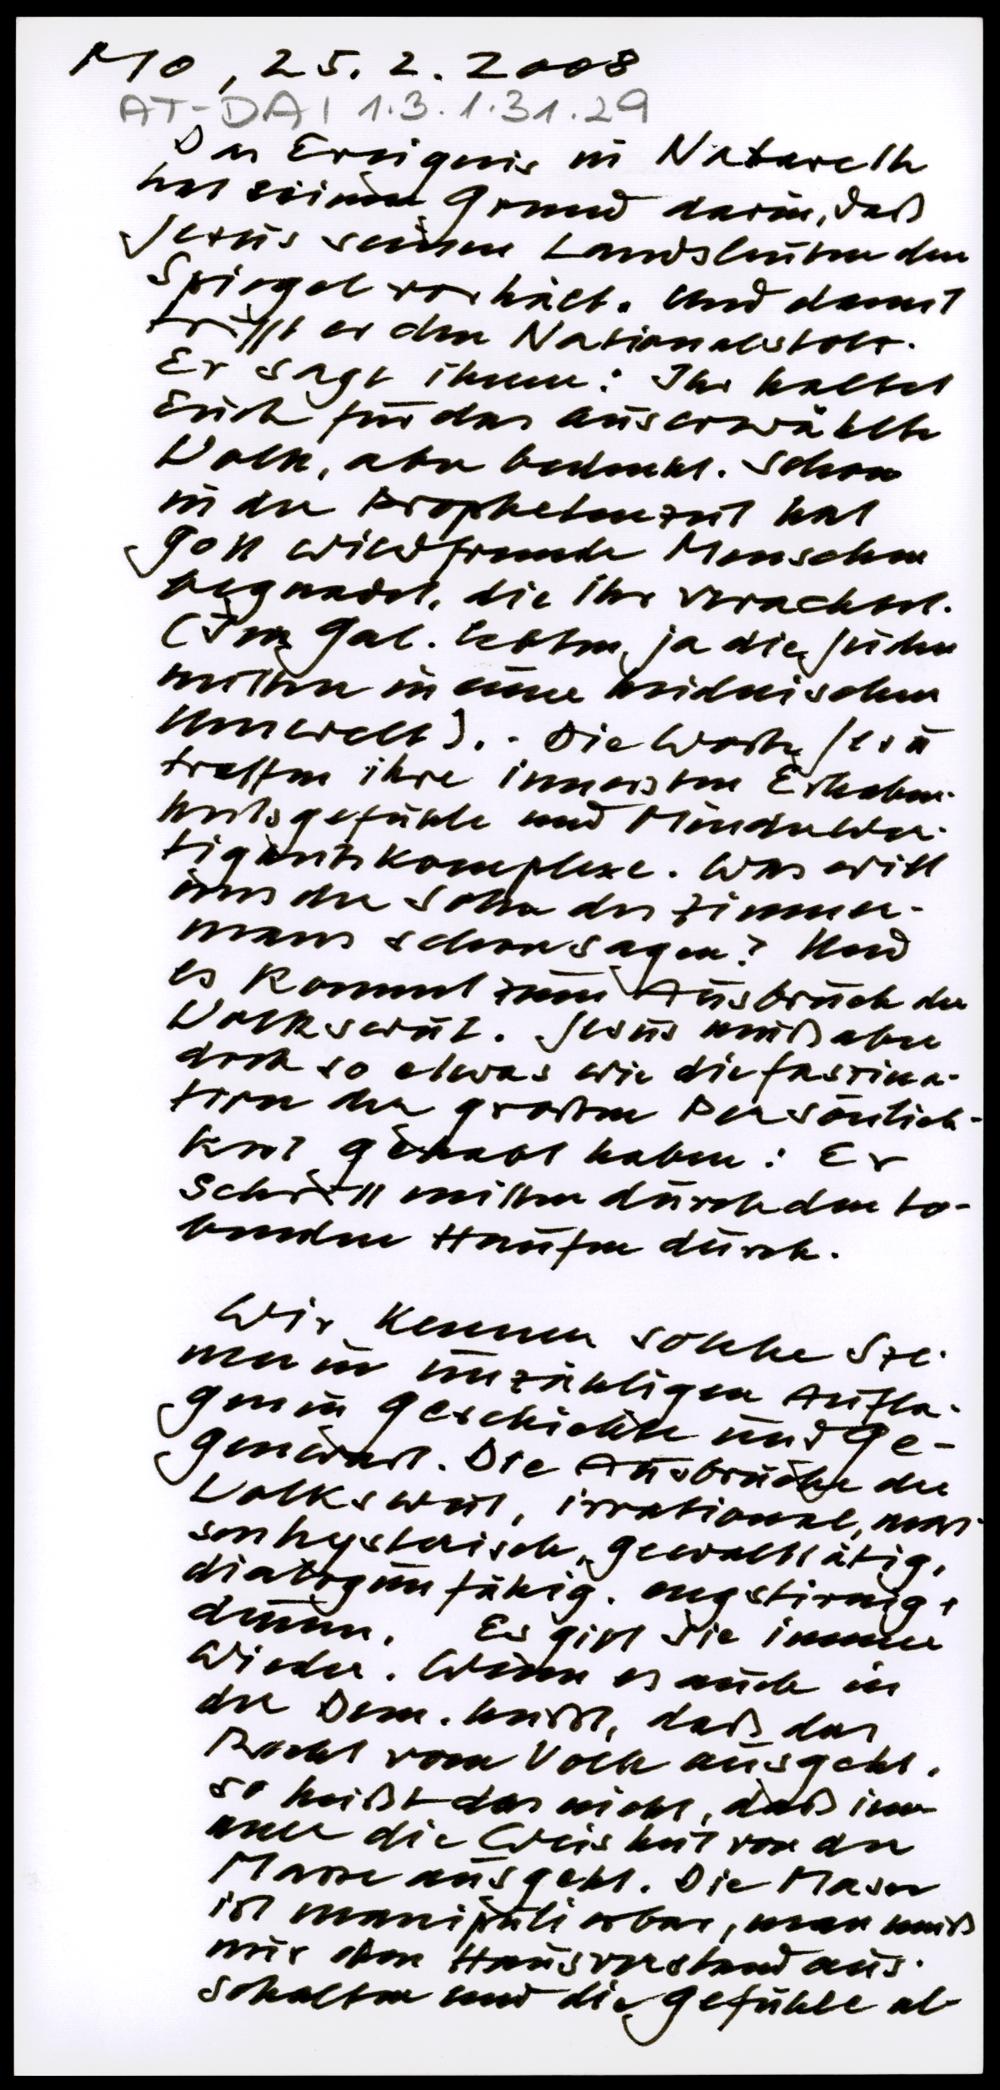 Mo, 25. 2. 2008
AT-DAI 1.3.1.31.29
Das Ereignis in Nazareth
hat seinen Grund darin, daß
Jesus seinen Landsleuten den
Spiegel vorhält. Und damit
trifft er den Nationalstolz.
Er sagt ihnen: Ihr haltet
Euch für das auserwählte
Volk, aber bedenkt. Schon
in der Prophetenzeit hat
Gott wildfremde Menschen
begnadet, die ihr verachtet.
(In Gal. lebten ja die Juden
mitten in einer heidnischen
Umwelt). - Die Worte Jesu
treffen ihre innersten Erhaben-
heitsgefühle und Minderwer-
tigkeitskomplexe. Was will
uns der Sohn des Zimmer-
manns schon sagen? Und
es kommt zum Ausbruch der
Volkswut. Jesus muß aber
doch so etwas wie die Faszina-
tion der großen Persönlich-
keit gehabt haben: Er
schritt mitten durch den to-
benden Haufen durch.
Wir kennen solche Sze-
nen in unzähligen Aufla-
gen in Geschichte und Ge-
genwart. Die Ausbrüche der
Volkswut, irrational, mas-
senhysterisch, gewalttätig,
dialogunfähig, engstirnig,
dumm. Es gibt sie immer
wieder. Wenn es auch in
der Dem. heißt, daß das
Recht vom Volk ausgeht,
so heißt das nicht, daß im-
mer die Weisheit von der
Masse ausgeht. Die Masse
ist manipulierbar, man muß
nur den Hausverstand aus-
schalten und die Gefühle al-